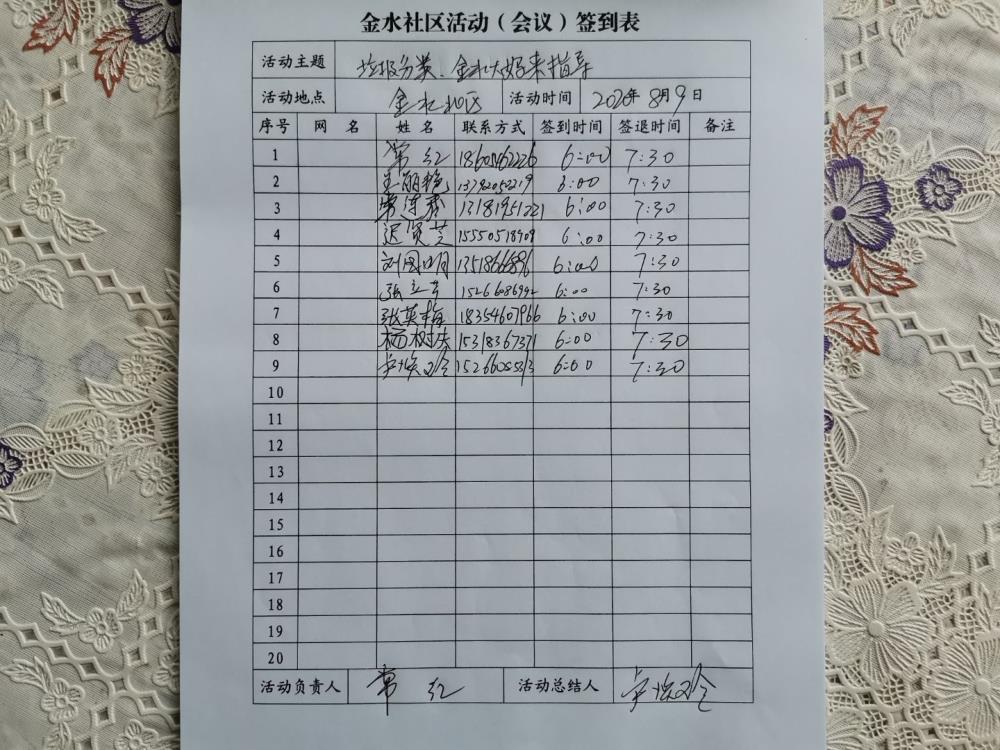 金水社区活动（会议）签到表
活动主题 垃圾分类、金水大妈来指导
活动地点 金水社区 活动时间 2020年8月9日
序号 网 名 姓 名 联系方式 签到时间 签退时间 备注
1 常红 18605462226 6:00 7:30
2 王丽艳 13792052219 6:00 7:30
3 常莲香 13181951221 6:00 7:30
4 迟贤芝 15550518909 6:00 7:30
5 刘国明 6:00 7:30
6 张立 6:00 7:30
7 张英梅 18354607966 6:00 7:30
8 杨树 15318367371 6:00 7:30
9 6:00 7:30
10
11
12
13
14
15
16
17
18
19
20
活动负责人 常红 活动总结人